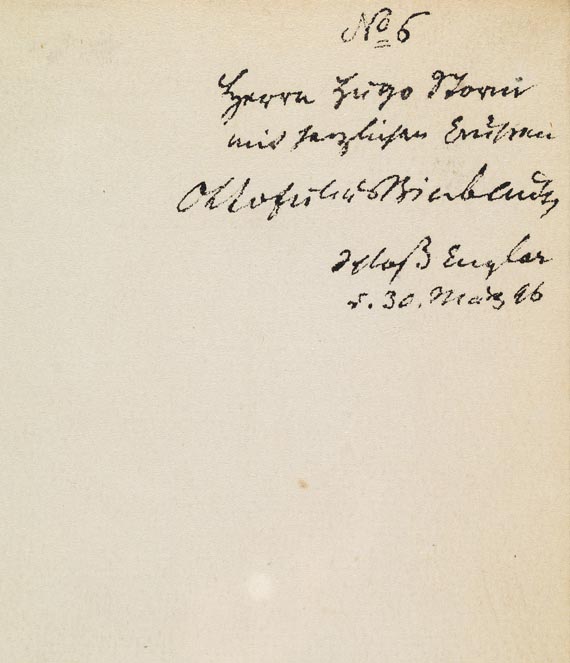 No 6
Herrn Hugo Storm
mit herzlichen Grüßen
Otto Julius Bierbaum
Schloß Englar
d. 30. März 96